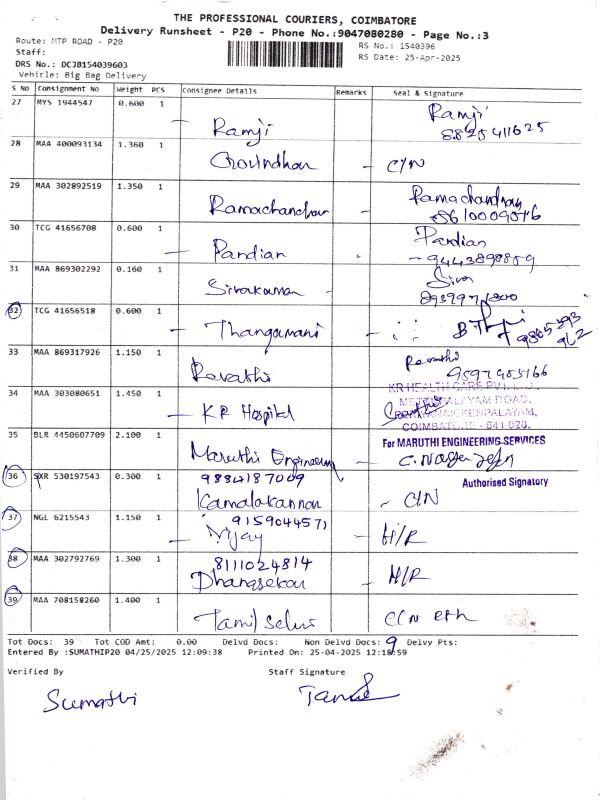 THE PROFESSIONAL COURIERS, COIMBATORE
Delivery Runsheet - P20 - Phone No.:9047080280 - Page No.:3
Route: MTP ROAD - P20
RS No.: 1540396
Staff:
RS Date: 25-Apr-2025
DRS No.: DCJB154039603
Vehicle: Big Bag Delivery
S No Consignment No Weight PCS Consignee Details Remarks Seal & Signature
27 MYS 1944547 0.600 1 Ramji Ramji
8825411625
28 MAA 400093134 1.360 1 Govindhan C/N
29 MAA 302892519 1.350 1 Ramachandran Ramachandran
30 TCG 41656708 0.600 1 Pandian Pandian
9443898859
31 MAA 869302292 0.160 1 Sivakumar Siva
32 TCG 41656518 0.600 1 Thangamani
33 MAA 869317926 1.150 1 Revathi Revathi
34 MAA 303080651 1.450 1 KR Hospital
KR HEALTH CARE PVT. LTD.,
METTUPALAYAM ROAD,
COIMBATORE - 641 029.
35 BLR 4450607709 2.100 1 Maruthi Engineering
For MARUTHI ENGINEERING SERVICES
Authorised Signatory
36 SXR 530197543 0.300 1 9884187009
Kamalakannan C/N
37 NGL 6215543 1.150 1 915904457
Vijay H/R
38 MAA 302792769 1.300 1 8111024814
Dhanasekar H/R
39 MAA 708158260 1.400 1 Tamil Selvi C/N
Tot Docs: 39 Tot COD Amt: 0.00 Delvd Docs: Non Delvd Docs: 9 Delvy Pts:
Entered By :SUMATHIP20 04/25/2025 12:09:38 Printed On: 25-04-2025 12:18:59
Verified By Staff Signature
Sumathi